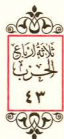 ثلاثة أرباع
الحزب
٤٣